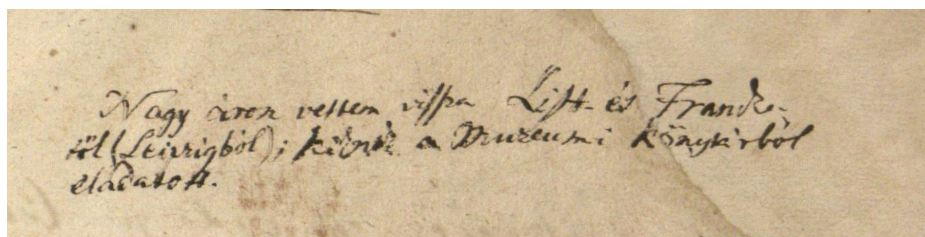 Nagy áron vettem vissza List- és Francke-
től (Leipzigból); a Muzeumi könyvtárból
eladatott.